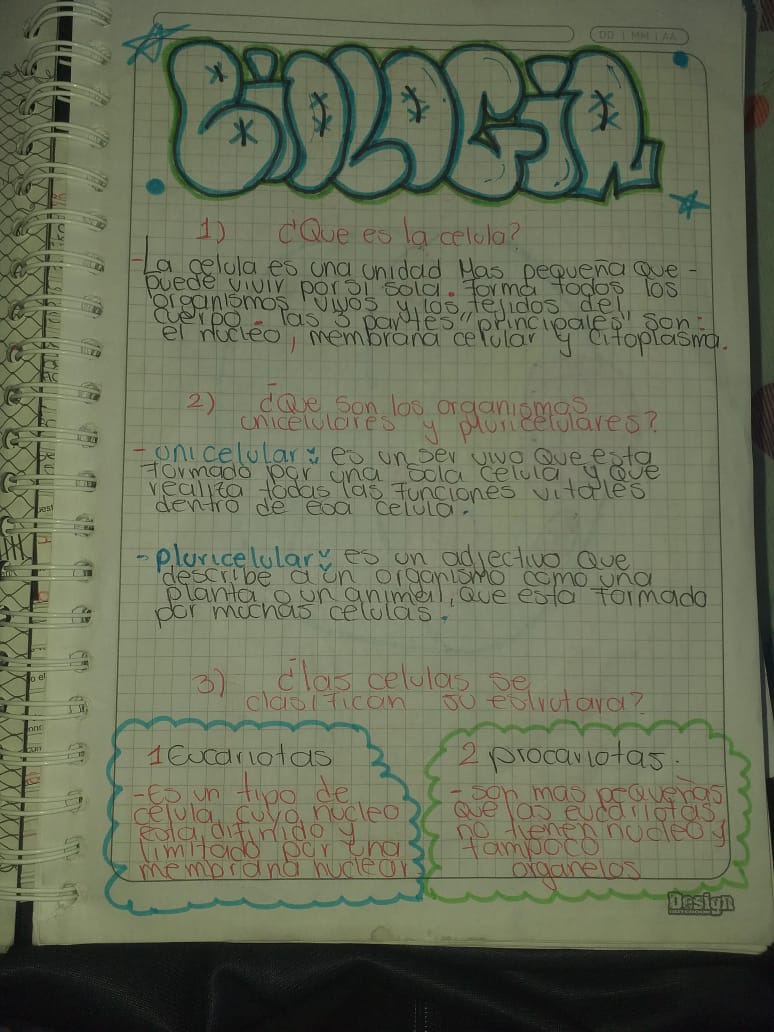 DD | MM | AA
BiOLOGiA
1) ¿Que es la celula?
- La celula es una unidad Mas pequeña que -
puede vivir por si sola. forma todos los
organismos vivos y los tejidos del
cuerpo. las 3 partes "principales" son:
el nucleo, membrana celular y citoplasma.
2) ¿Que son los organismos
unicelulares y pluricelulares?
- unicelular: es un ser vivo que esta
formado por una sola celula y que
realiza todas las funciones vitales
dentro de esa celula.
- pluricelular: es un adjectivo que
describe a un organismo como una
planta o un animal, que esta formado
por muchas celulas.
3) ¿las celulas se
clasifican su estrutara?
1 Eucariotas
- Es un tipo de
celula cuyo nucleo
esta difinido y
limitado por una
membrana nuclear
2 procariotas.
- son mas pequeñas
que las eucariotas
no tienen nucleo y
tampoco
organelos
Design